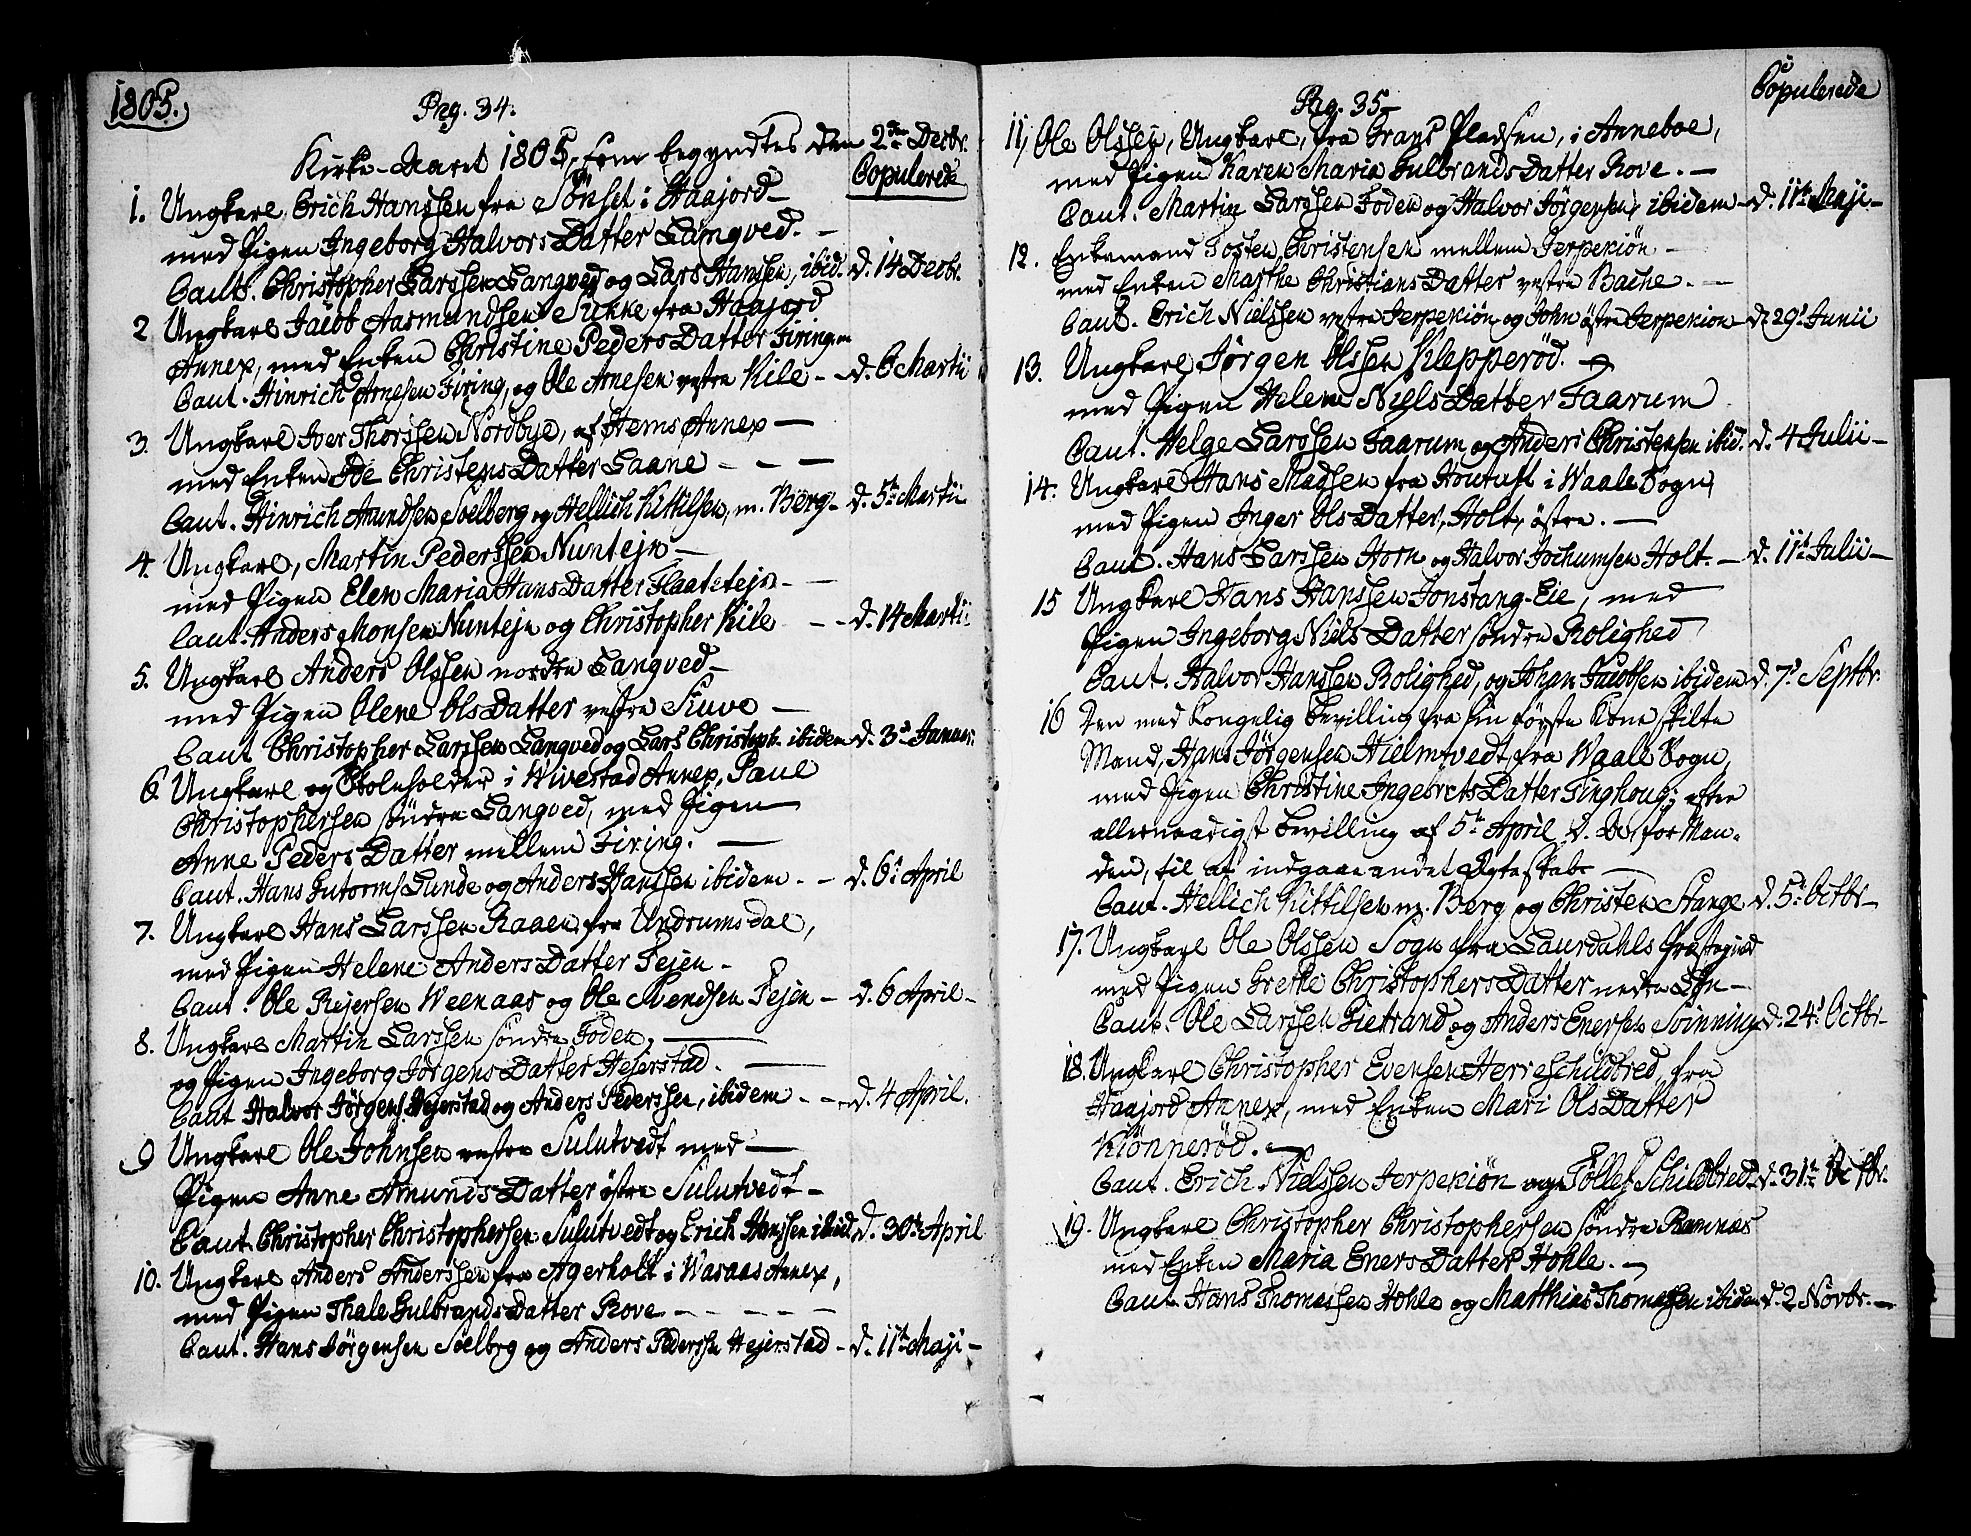 1805.
Pag. 34.
Kirke-Aaret 1805, som begyndtes den 2den Decbr.
Copulerede
1. Ungkarl Erich Hanssen fra Sönset i Haajord
med Pigen Ingeborg Halvors Datter Langved.
Caut. Christopher Larssen Langved og Lars Hanssen, ibid. d. 14 Decbr.
2 Ungkarl Jacob Aasmundsen Sukke fra Haajord
Annex, med Enken Christine Peders Datter Firing
Caut. Hinrich Arnesen Firing, og Ole Arnesen vestre Kile - d. 6 Martii
3. Ungkarl Iver Thorssen Nordbye, af Hems Annex
med Enken Ide Christens Datter Laane
Caut. Hinrich Amundsen Soelberg og Hellich Kittilsen, m. Berg - d. 5te Martii
4. Ungkarl, Martin Pederssen Nuntejn
med Pigen Elen Maria Hans Datter Flaatetejn
Caut. Anders Monsen Nuntejn og Christopher Kile - d. 14 Martii
5. Ungkarl Anders Olssen nordre Langved
med Pigen Olene Ols Datter vestre Fuve
Caut Christopher Larssen Langved og Lars Christoph. ibidem d. 3d Januar.
6. Ungkarl og Skoleholder i Wivestad Annex, Paul
Christophersen söndre Langved, med Pigen
Anne Peders Datter mellem Firing.
Caut. Hans Gutorms Lunde og Anders Hanssen ibidem - d. 6t April
7. Ungkarl Hans Larssen Raaen fra Undrumsdal,
med Pigen Helene Anders Datter Fejen
Caut. Ole Rejersen Weenaas og Ole Svendsen Fejen - d. 6 April
8. Ungkarl Martin Larssen söndre Foden,
og Pigen Ingeborg Jörgens Datter Hejerstad.
Caut Halvor Jörgens. Hejerstad og Anders Pederssen, ibidem - d. 4 April.
9 Ungkarl Ole Johnsen vestre Sulutvedt med
Pigen Anne Amunds Datter östre Sulutvedt
Caut. Christopher Christophersen Sulutvedt og Erich Hanssen ibid. d. 30te April
10. Ungkarl Anders Anderssen fra Agerholt i Wasaas Annex,
med Pigen Thale Gulbrands Datter Rove
Caut. Hans Jörgensen Soelbrg og Anders Pederssen Hejerstad - d. 11te Maji
Pag. 35
Copulerede
11, Ole Olssen, Ungkarl, fra Grans Pladsen, i Anneboe,
med Pigen Karen Maria Gulbrands Datter Rove.
Caut. Martin Larssen Foden og Halvor Jörgensen, ibidem - d. 11te Maji
12. Enkemand Tosten Christensen mellem Jerpekiön
med Enken Marthe Christians Datter vestre Bache.
Caut. Erich Nielssen vestre Jerpekiön og John östre Jerpekiön - d. 29d Junii
13. Ungkarl Jörgen Olssen Klepperöd.
med Pigen Helene Niels Datter Faarum
Caut. Helge Larssen Faarum og Anders Christensen ibid. d. 4 Julii
14. Ungkarl Hans Madsen fra Houtuft i Waale Sogn
med Pigen Inger Ols Datter, Holt, östre.
Caut. Hans Larssen Horn og Halvor Jochumsen Holt. - d. 11te Julii
15 Ungkarl Hans Hanssen Fonstang-Eie, med
Pigen Ingeborg Niels Datter söndre Rolighed
Caut. Halvor Hanssen Rolighed, og Johan Jacobsen ibidem d. 7d Septbr.
16 Den med Kongelig Bevilling fra sin förste Kone skilte
Mand, Hans Jörgensen Hielmtvedt, fra Waale Sogn,
med Pigen Christine Ingebrets Datter Tinghoug; efter
allernaadigst Bevilling af 5te April d. A. for Man-
den, til at indgaae andet Egteskab
Caut. Hellich Kittilsen m. Berg og Christen Stange d. 5d Octbr
17. Ungkarl Ole Olssen Sogn fra Laurdahls Præstegield
med Pigen Grethe Christophers Datter nedre Lön
Caut. Ole Larssen Gietrand og Anders Enersen Svinning d. 24d Octbr.
18. Ungkarl Christopher Evensen Herreschildbred, fra
Haajord Annex, med Enken Mari Ols Datter
Kiönneröd.
Caut. Erich Nielssen Jerpekiön og Tollef Schildbred d. 31te Octbr.
19. Ungkarl Christopher Christophersen söndre Ramnæs
med Enken Maria Eners Datter Hohle.
Caut. Hans Thomassen Hohle og Matthias Thomassen ibidem d. 2 Novbr.